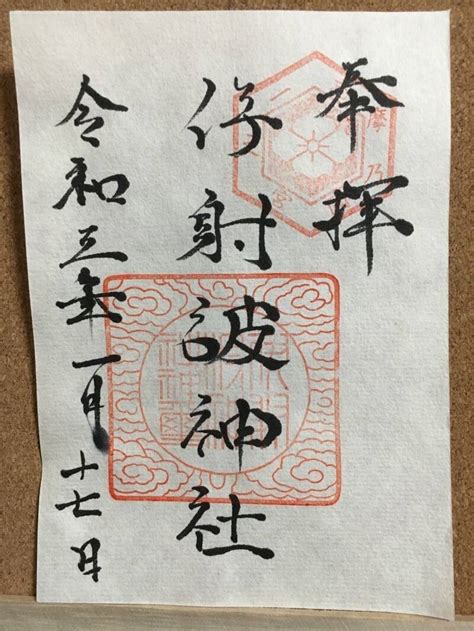 奉拝
伊射波神社
令和三年一月十七日